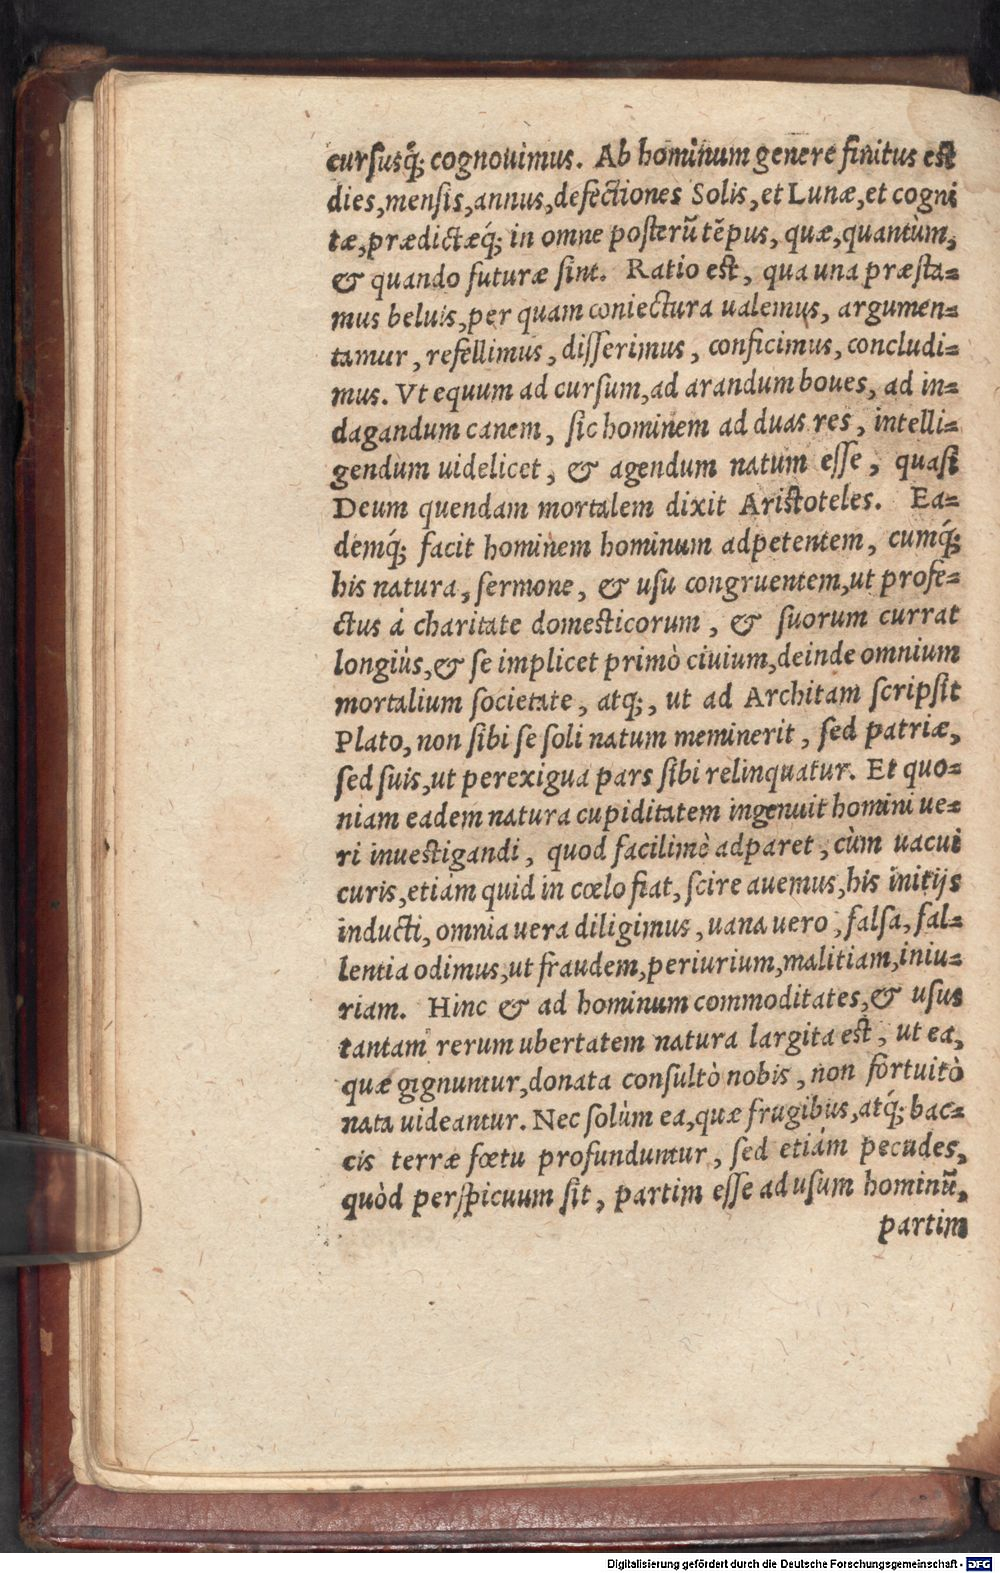 cursusq́; cognouimus. Ab hominum genere finitus est
dies, mensis, annus, defectiones Solis, et Lunæ, et cogni
tæ, prædictæq́; in omne posterũ tẽpus, quæ, quantùm,
& quando futuræ sint. Ratio est, qua una præsta=
mus beluis, per quam coniectura ualemus, argumen=
tamur, refellimus, disserimus, conficimus, concludi=
mus. Vt equum ad cursum, ad arandum boues, ad in=
dagandum canem, sic hominem ad duas res, intelli=
gendum uidelicet, & agendum natum esse, quasi
Deum quendam mortalem dixit Aristoteles. Ea=
demq́; facit hominem hominum adpetentem, cumq́;
his natura, sermone, & usu congruentem, ut profe=
ctus à charitate domesticorum, & suorum currat
longiùs, & se implicet primò ciuium, deinde omnium
mortalium societate, atq́;, ut ad Architam scripsit
Plato, non sibi se soli natum meminerit, sed patriæ,
sed suis, ut perexigua pars sibi relinquatur. Et quo=
niam eadem natura cupiditatem ingenuit homini ue=
ri inuestigandi, quod facilimè adparet, cùm uacui
curis, etiam quid in cœlo fiat, scire auemus, his initijs
inducti, omnia uera diligimus, uana uero, falsa, fal=
lentia odimus, ut fraudem, periurium, malitiam, iniu=
riam. Hinc & ad hominum commoditates, & usus
tantam rerum ubertatem natura largita est, ut ea,
quæ gignuntur, donata consultò nobis, non fortuitò
nata uideantur. Nec solùm ea, quæ frugibus, atq́; bac=
cis terræ fœtu profunduntur, sed etiám pecudes,
quòd perspicuum sit, partim esse ad usum hominũ,
partim
Digitalisierung gefördert durch die Deutsche Forschungsgemeinschaft - DFG